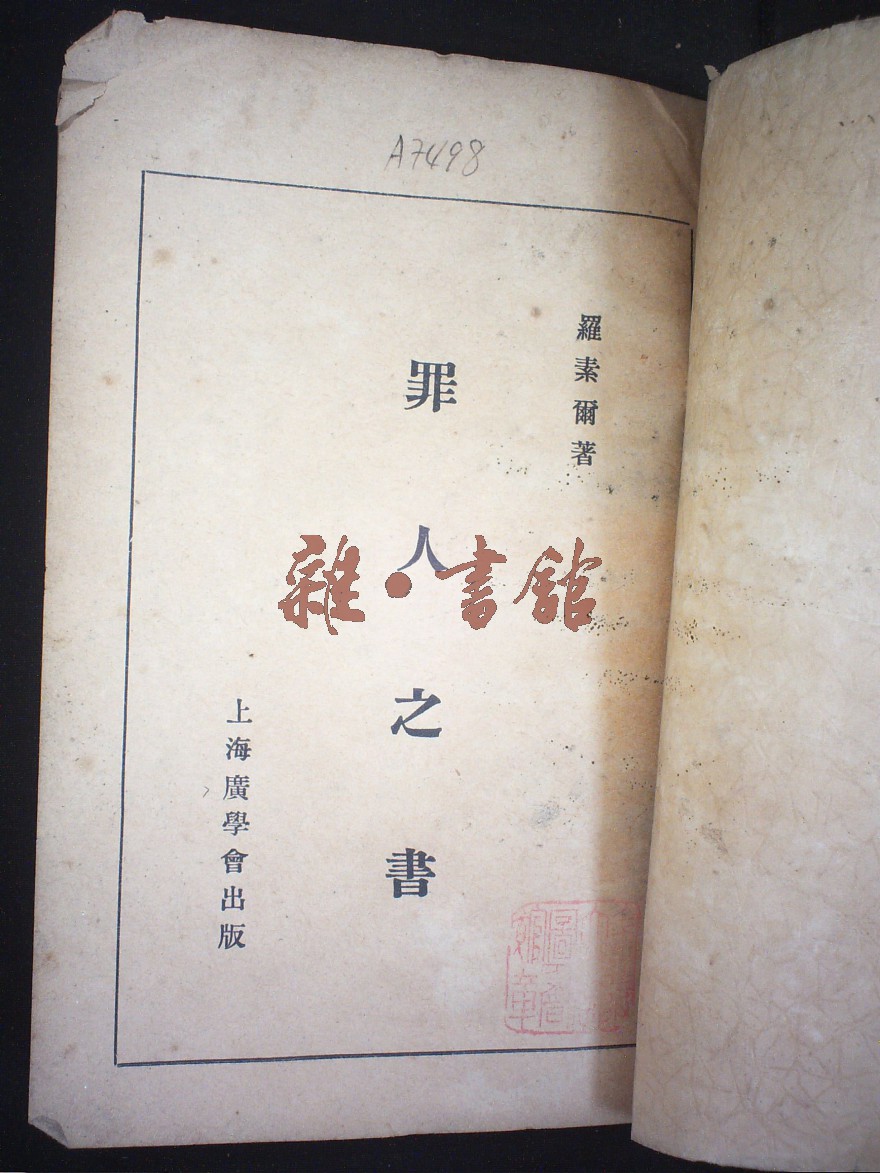 A7498
羅素爾著
罪人之書
上海廣學會出版
雜·書館